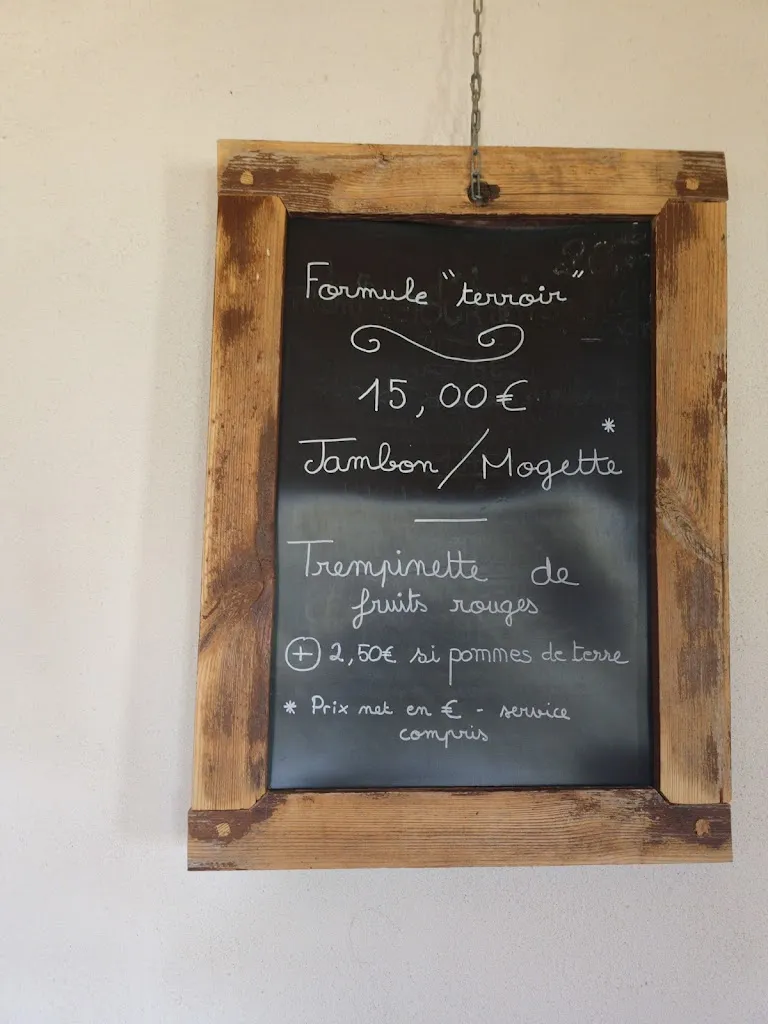 Formule "terroir"
15,00€
Jambon/Mogette *
Trempinette de
fruits rouges
+ 2,50€ si pommes de terre
* Prix net en € - service
compris